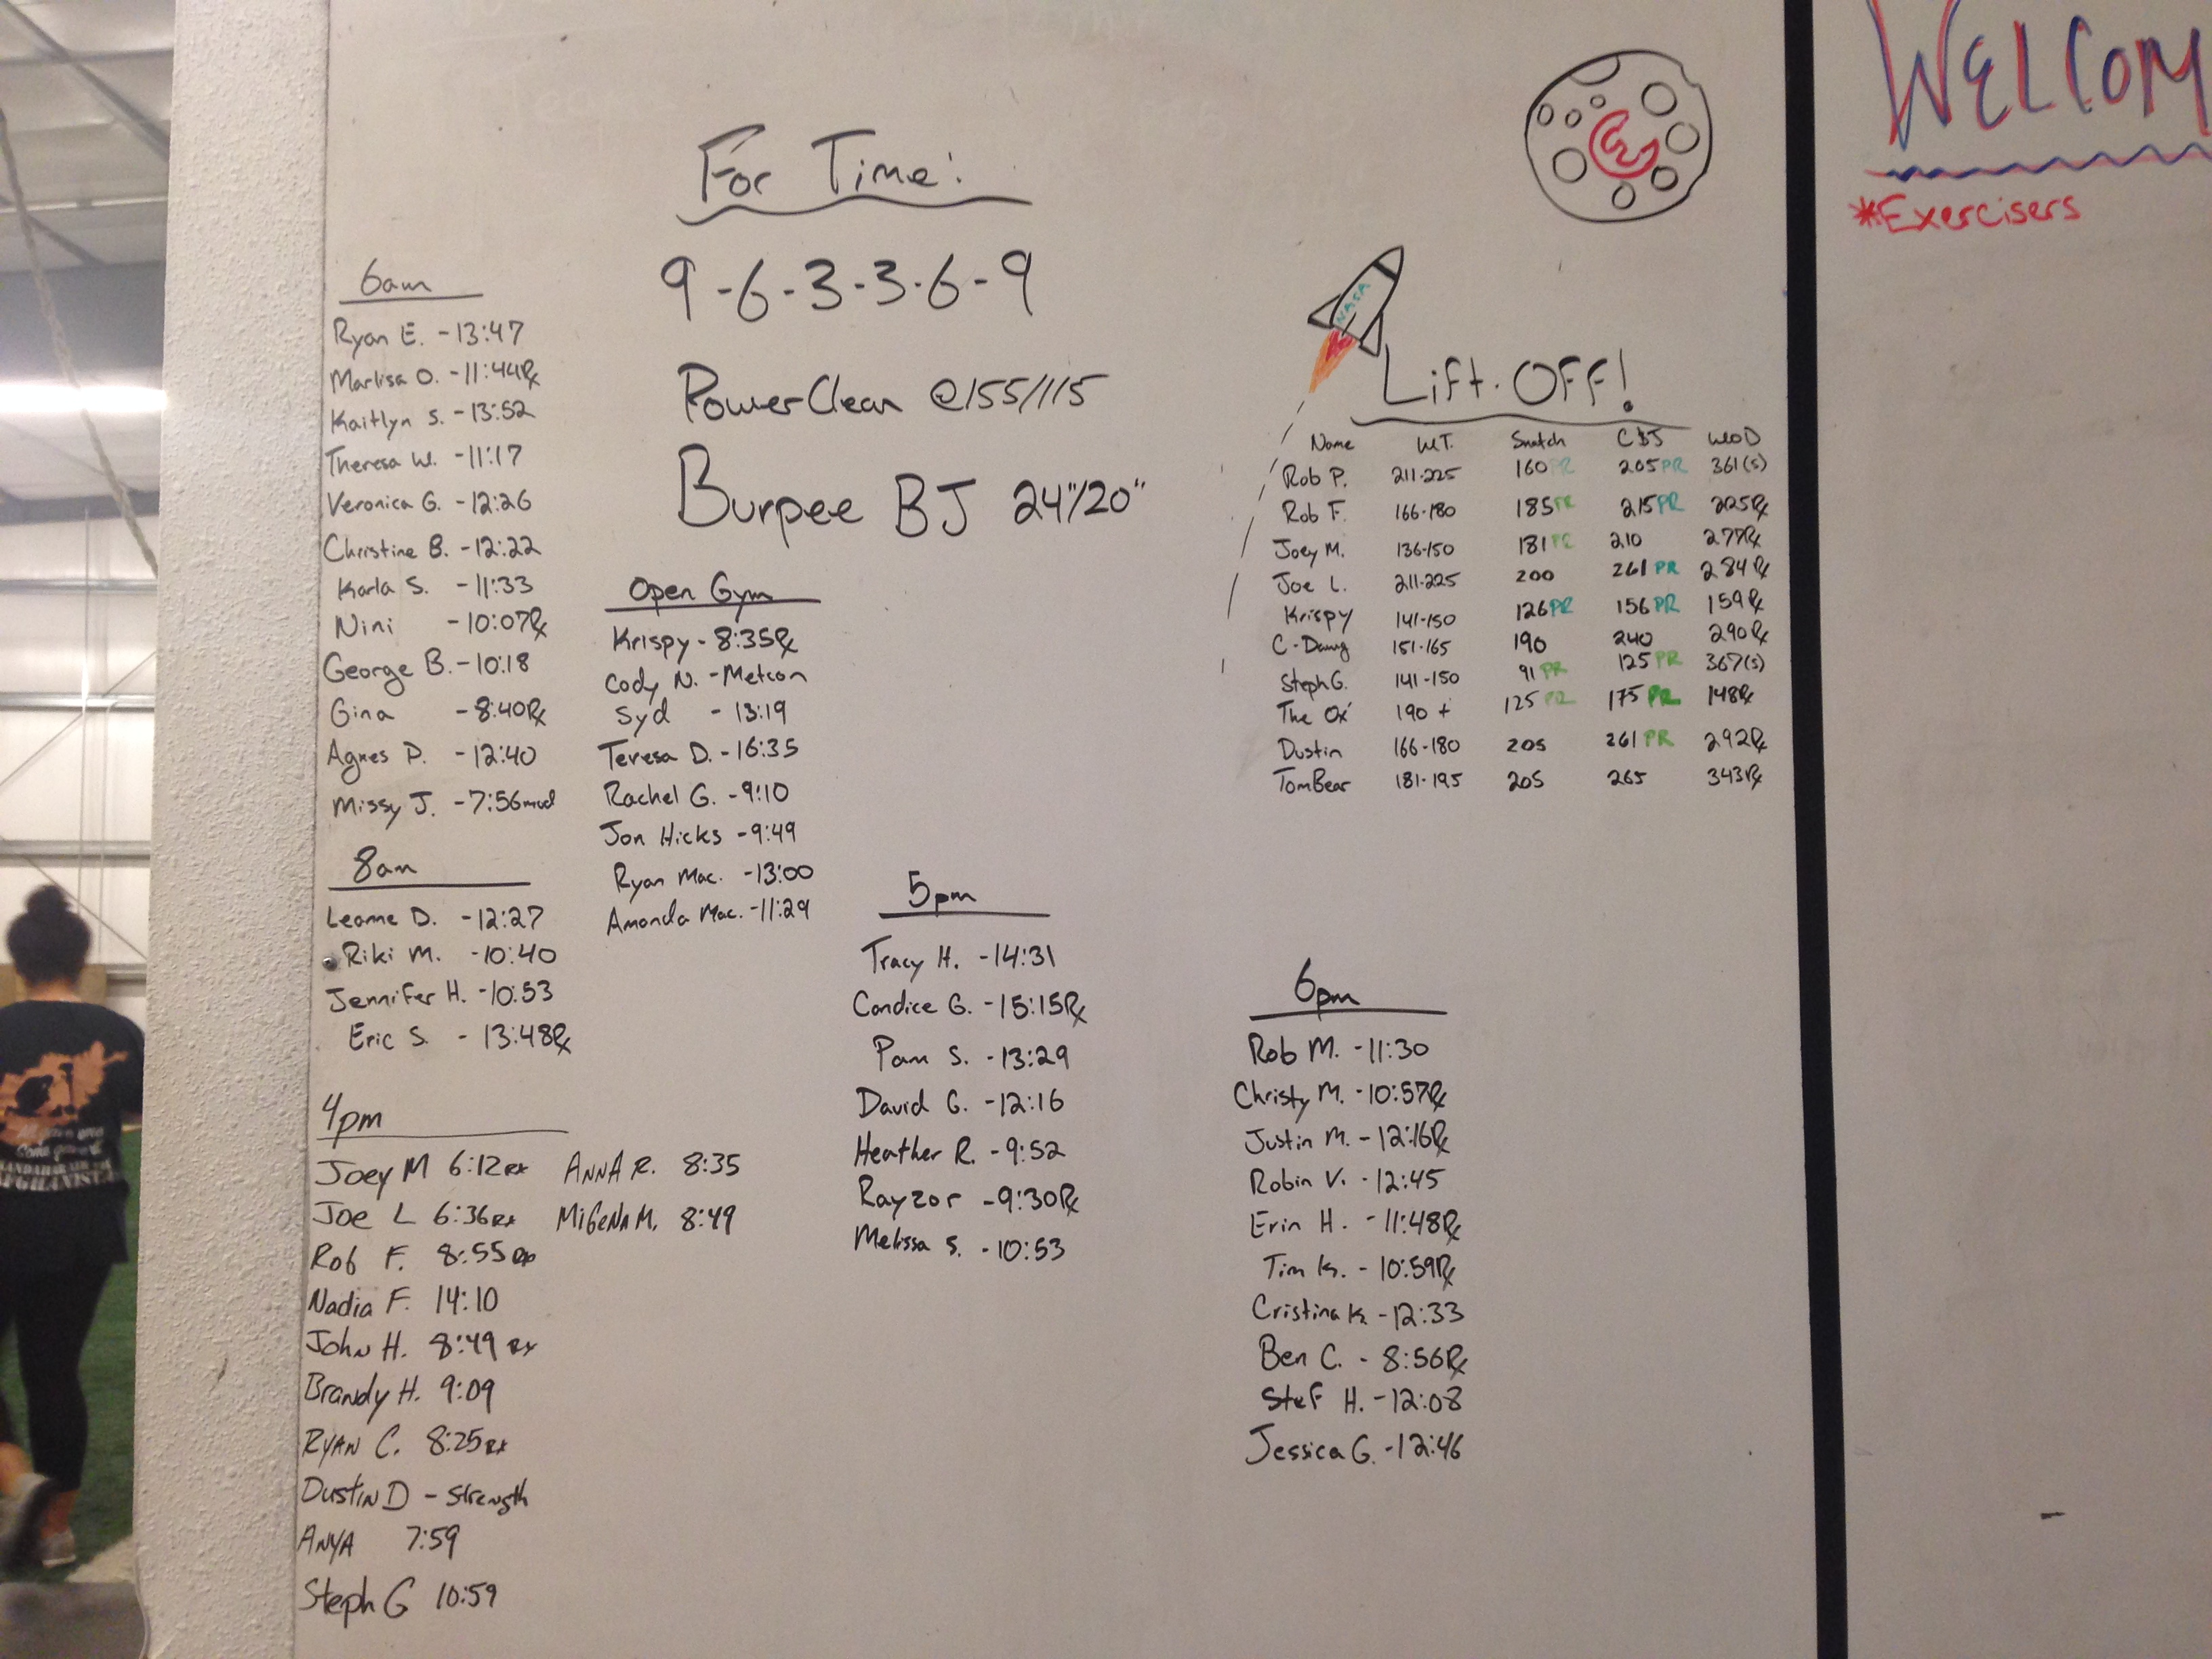 For Time:
9-6-3-3-6-9
Power Clean @155/115
Burpee BJ 24"/20"
6am
Ryan E. - 13:47
Marlisa O. - 11:44Rx
Kaitlyn S. - 13:52
Theresa W. - 11:17
Veronica G. - 12:26
Christine B. - 12:22
Karla S. - 11:33
Nini - 10:07Rx
George B. - 10:18
Gina - 8:40Rx
Agnes P. - 12:40
Missy J. - 7:56mod
8am
Leanne D. - 12:27
Riki M. - 10:40
Jennifer H. - 10:53
Eric S. - 13:48Rx
4pm
Joey M 6:12Rx
Joe L 6:36Rx
Rob F. 8:55Rx
Nadia F. 14:10
John H. 8:49 Rx
Brandy H. 9:09
Ryan C. 8:25Rx
Dustin D - Strength
Anya 7:59
Steph G 10:59
Anna R. 8:35
Migena M. 8:49
Open Gym
Krispy - 8:35Rx
Cody N. - Metcon
Syd - 13:19
Teresa D. - 16:35
Rachel G. - 9:10
Jon Hicks - 9:49
Ryan Mac. - 13:00
Amanda Mac. - 11:29
5pm
Tracy H. - 14:31
Candice G. - 15:15Rx
Pam S. - 13:29
David G. - 12:16
Heather R. - 9:52
Rayzor - 9:30Rx
Melissa S. - 10:53
6pm
Rob M. - 11:30
Christy M. - 10:57Rx
Justin M. - 12:16Rx
Robin V. - 12:45
Erin H. - 11:48Rx
Tim K. - 10:59Rx
Cristina K. - 12:33
Ben C. - 8:56Rx
Stef H. - 12:08
Jessica G. - 12:46
NASA
Lift-Off!
Name WT. Snatch C&J WOD
Rob P. 211-225 160PR 205PR 361(s)
Rob F. 166-180 185PR 215PR 225Rx
Joey M. 136-150 181PR 210 277Rx
Joe L. 211-225 200 261PR 284Rx
Krispy 141-150 126PR 156PR 159Rx
C-Dawg 151-165 190 240 290Rx
Steph G. 141-150 91PR 125PR 367(s)
The Ox 190+ 125PR 175PR 148Rx
Dustin 166-180 205 261PR 292Rx
TomBear 181-195 205 265 343Rx
WELCOM
*Exercisers